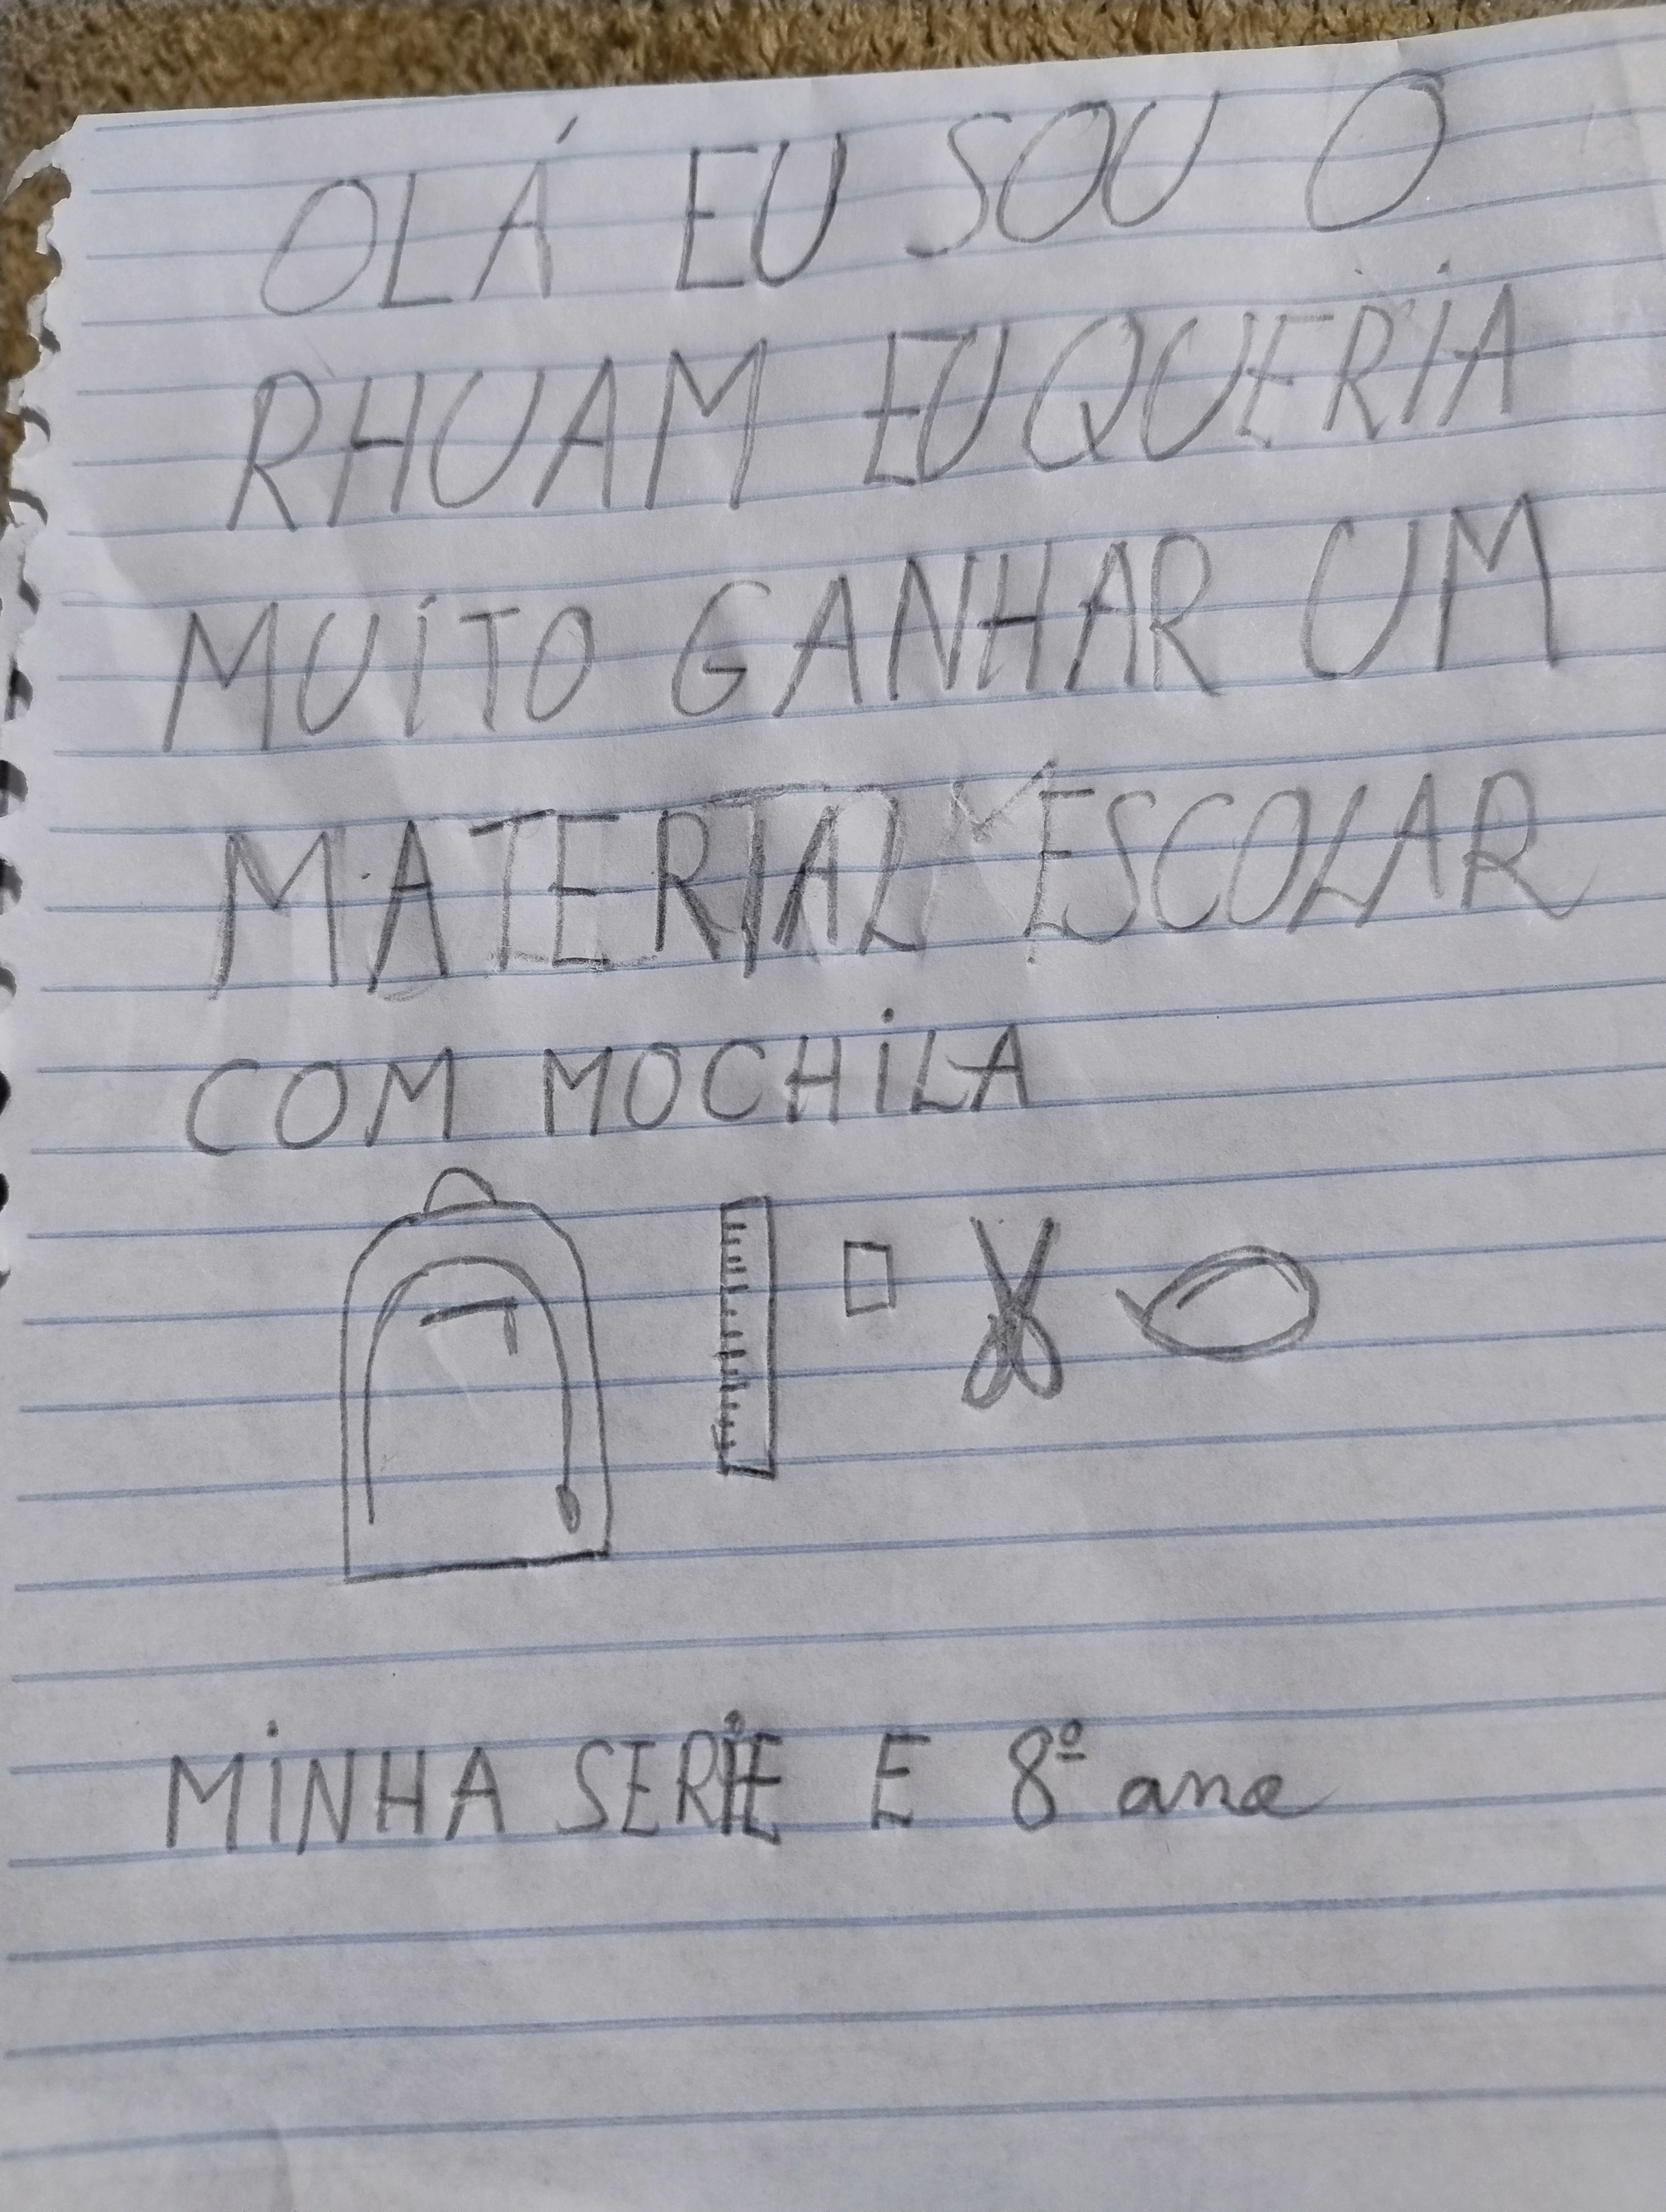 OLÁ EU SOU O
RHUAM EU QUERIA
MUITO GANHAR UM
MATERIAL ESCOLAR
COM MOCHILA
MINHA SERIE E 8º ano